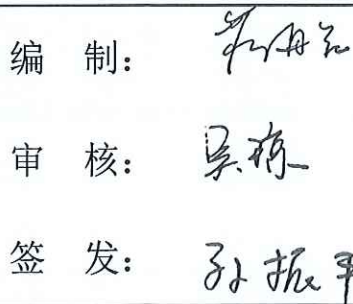 编 制：
审 核： 吴琼
签 发： 孙振平